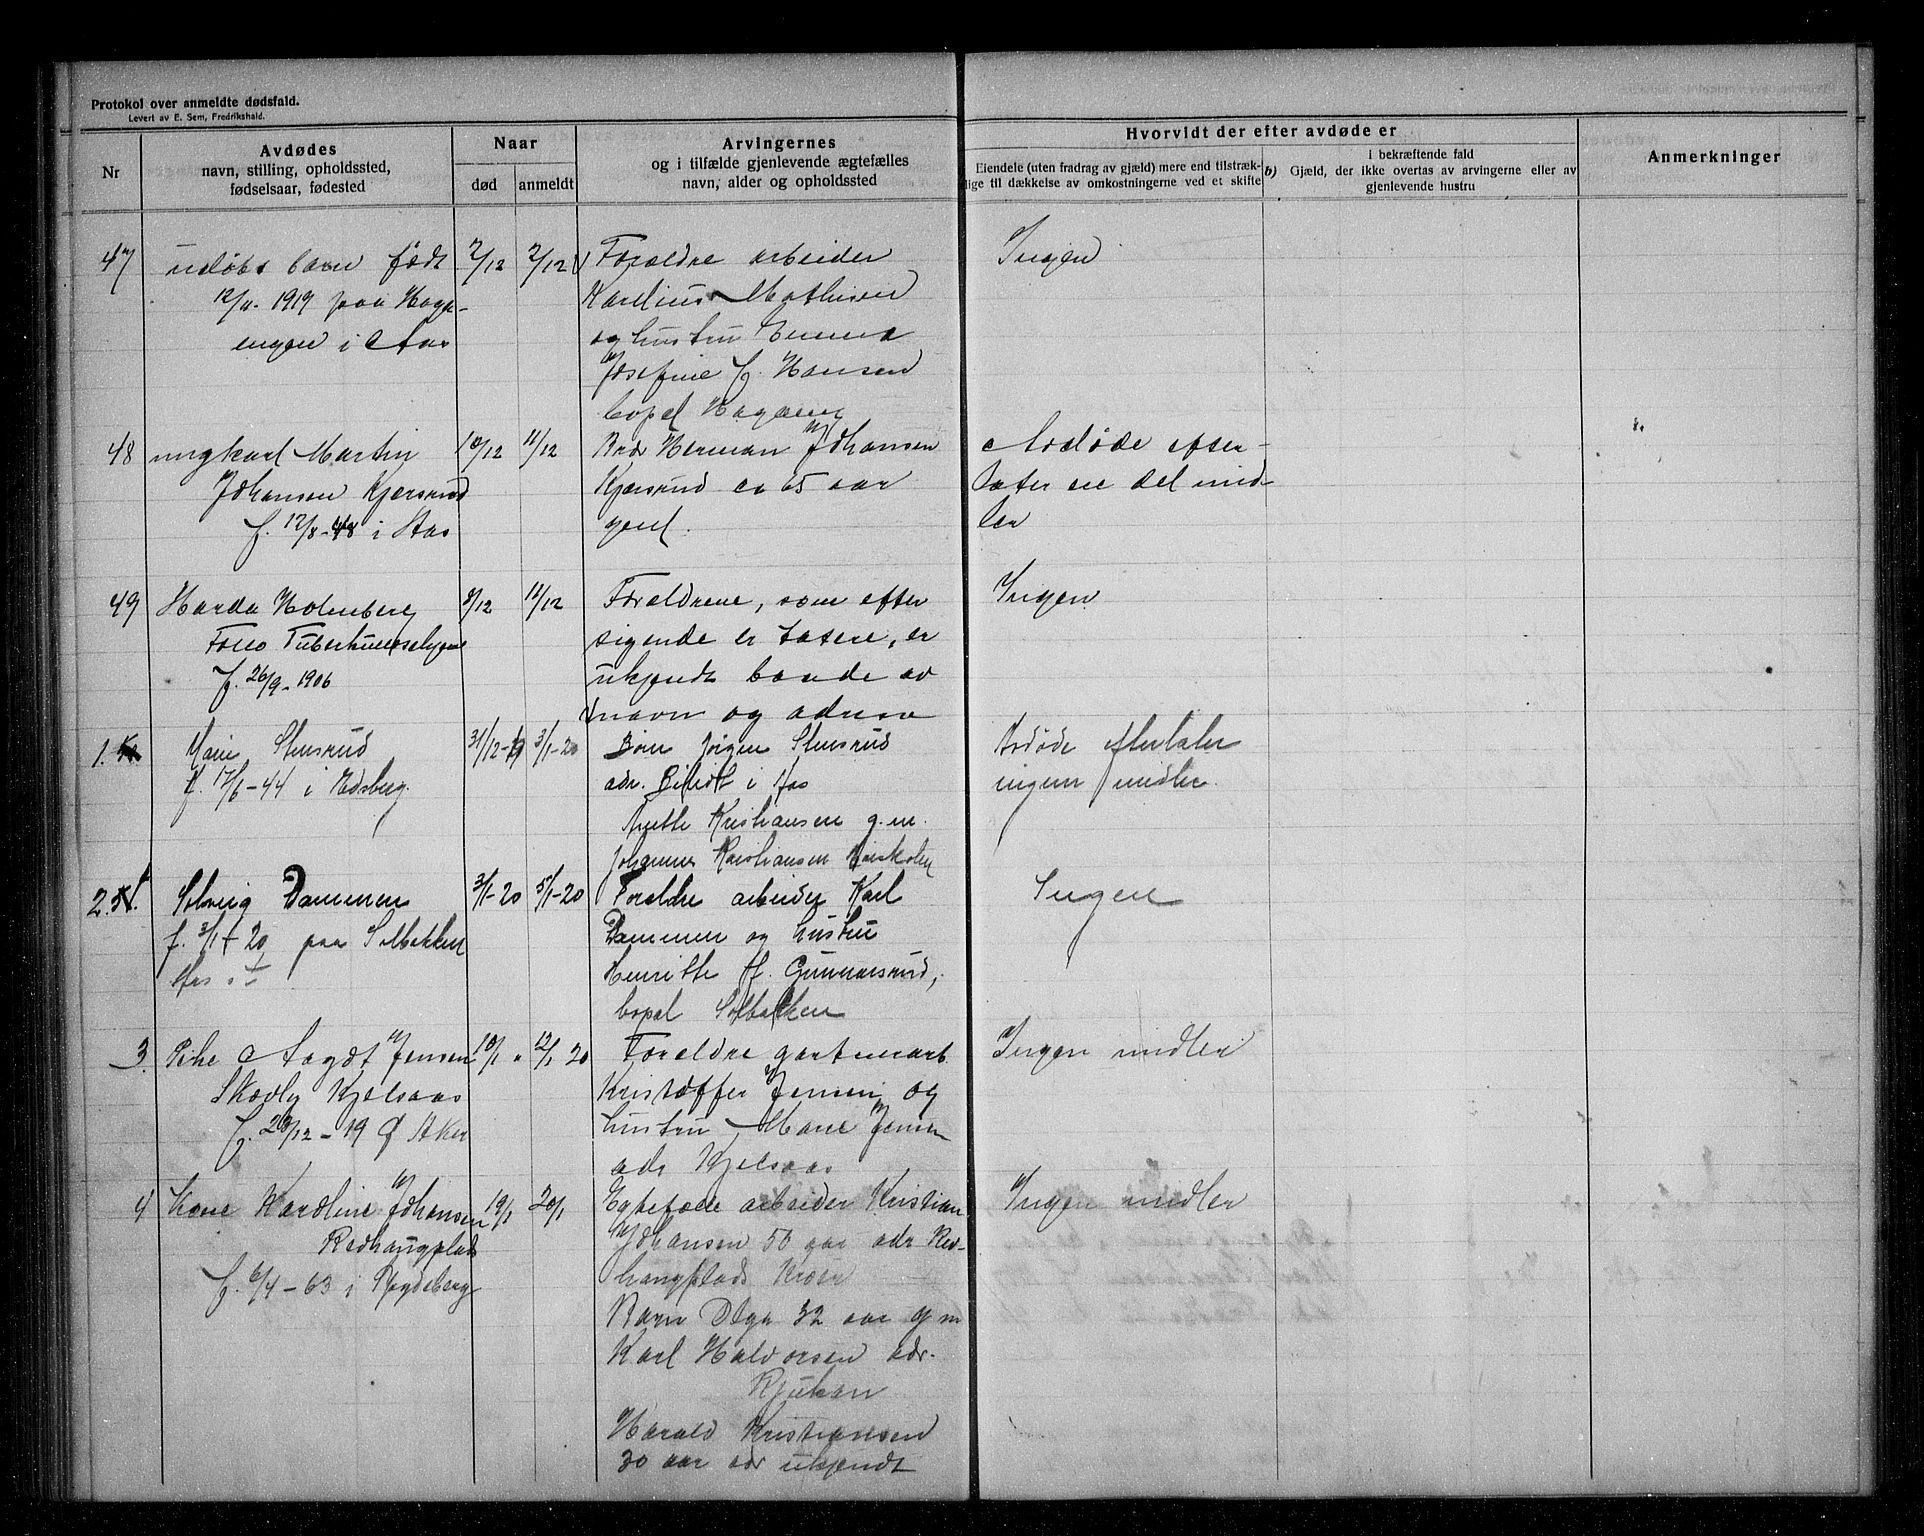 Protokol over anmeldte dødsfald.
Levert av E. Sem, Fredrikshald.
Nr
Avdødes
navn, stilling, opholdssted,
fødselsaar, fødested
Naar
død
anmeldt
Arvingernes
og i tilfælde gjenlevende ægtefælles
navn, alder og opholdssted
Hvorvidt der efter avdøde er
Eiendele (uten fradrag av gjæld) mere end tilstræk-
lige til dækkelse av omkostningerne ved et skifte
b)
I bekræftende fald
Gjæld, der ikke overtas av arvingerne eller av
gjenlevende hustru
Anmerkninger
47
udøbt barn født
12/11. 1919 paa Hage-
engen i Aas
7/12
7/12
Forældre arbeider
Karelius Mathisen
og hustru Emma
Josefine f. Hansen
bopæl
Ingen
48
ungkarl Martin
Johansen Kjærsrud
f. 12/8-48 i Aas
10/12
11/12
Bror Herman Johansen
Kjærsrud ca 65 aar
gml.
Avdøde efter-
later en del mid-
ler
49
Harda Holmberg
Follo Tuberkulosehjem
f. 26/9-1906
8/12
11/12
Forældrene, som efter
sigende er tatere, er
ukjendt baade av
navn og adresse
Ingen
1.
Marie Stensrud
f. 17/6-44 i Idsberg.
31/12-19
3/1-20
Børn Jørgen Stensrud
adr. i Aas
Anette Kristiansen g.m.
Johannes Kristiansen
Avdøde efterlater
ingen midler.
2.
Solveig Dammen
f. 3/1-20 paa Solbakken
Aas
3/1-20
5/1-20
Forældre arbeider Karl
Dammen og hustru
Henriette f. Gunnarsrud,
bopæl Solbakken
Ingen
3.
Pike Aagot Jensen
Skovly Kjelsaas
f. 28/12-19 Ø Aker
10/1 "
12/1 20
Forældre gartnerarb.
Kristoffer Jensen og
hustru Marie Jensen
adr Kjelsaas
Ingen midler
4
Kone Karoline Johansen
Rødhaugplads
f. 6/4-63 i
19/1
20/1
Egtefælle arbeider Kristian
Johansen 50 aar adr Rød-
haugplads Kroer
Barn Olga 32 aar g m
Karl Halvorsen adr.
Rjukan
Harald Kristiansen
30 aar adr ukjendt
Ingen midler